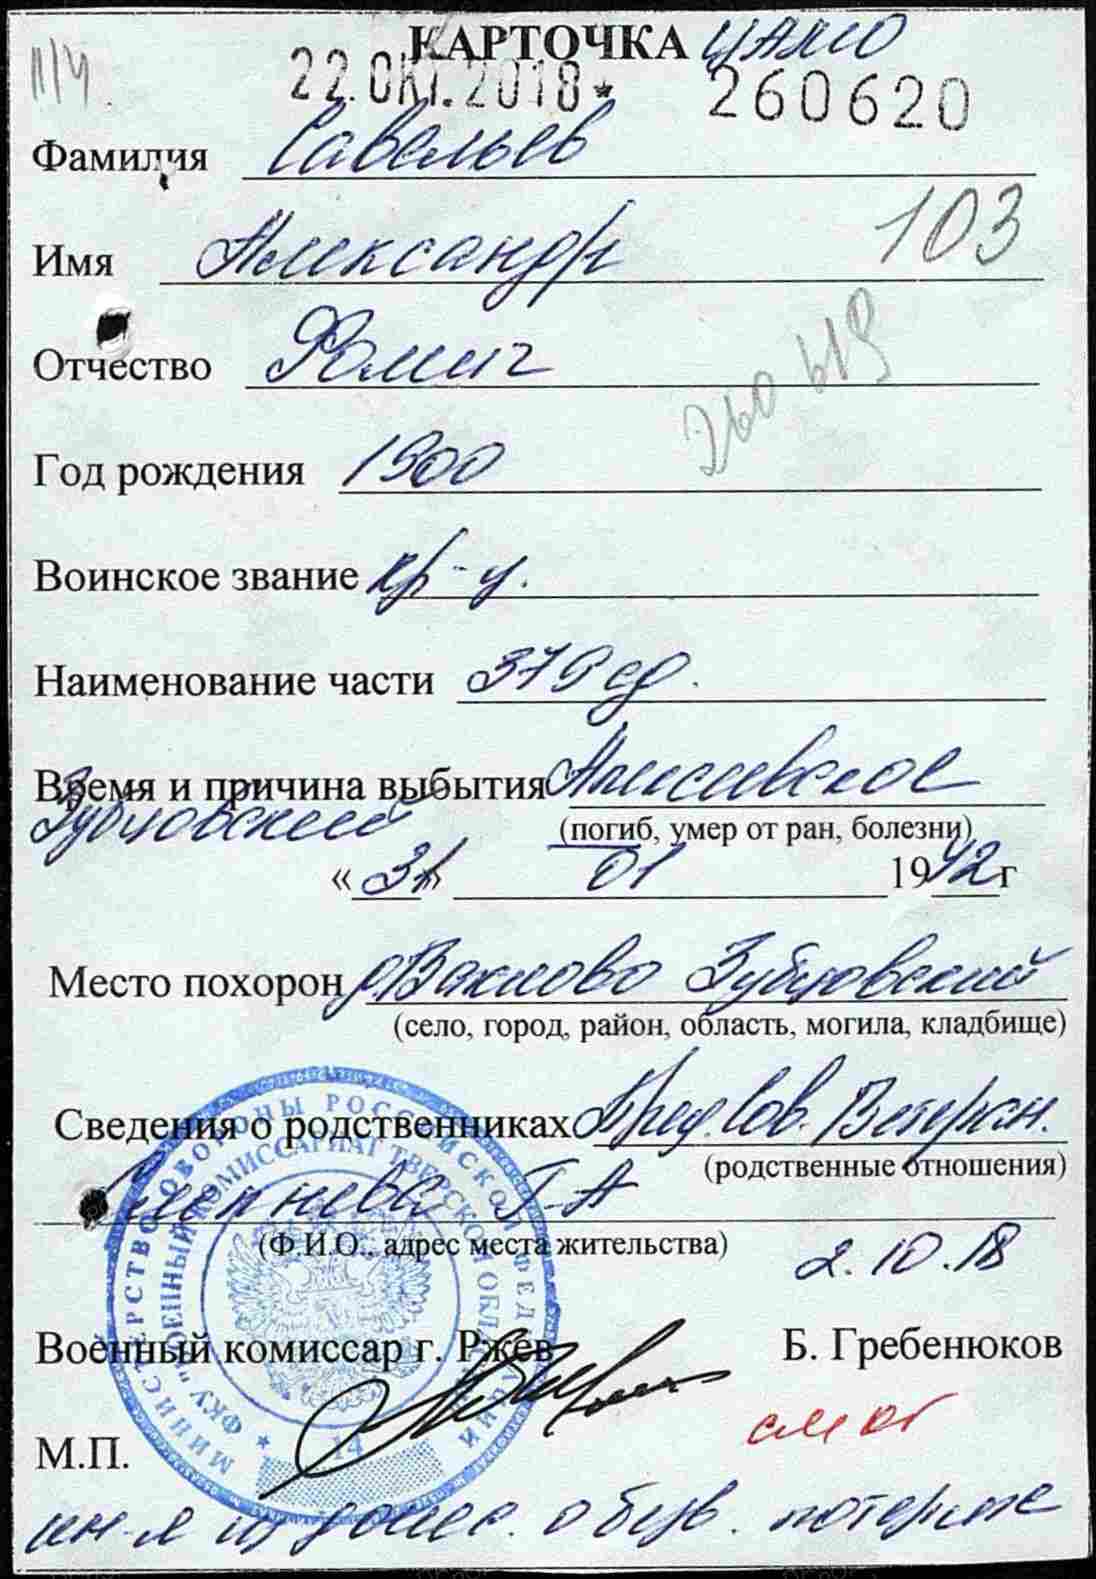 КАРТОЧКА ЦАМО
п/ч
22.ОКТ.2018* 260620
Фамилия Савельев
Имя Александр
103
Отчество Фомич
260619
Год рождения 1900
Воинское звание кр-ц.
Наименование части 379 сд.
Время и причина выбытия
Зубцовский
(погиб, умер от ран, болезни)
«31» 01 1942г
Место похорон Зубцовский
(село, город, район, область, могила, кладбище)
Сведения о родственниках Пред. Сов. Ветеран.
(родственные отношения)
Т-А
(Ф.И.О., адрес места жительства)
2.10.18
Военный комиссар г. Ржев Б. Гребенюков
М.П.
МИНИСТЕРСТВО ОБОРОНЫ РОССИЙСКОЙ ФЕДЕРАЦИИ
ФКУ "ВОЕННЫЙ КОМИССАРИАТ ТВЕРСКОЙ ОБЛАСТИ
14
см от
ин-я из донес. о безв. потерях